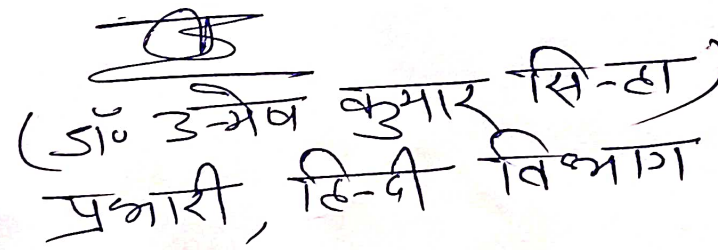 (डॉ० उन्मेष कुमार सिन्हा)
प्रभारी, हिन्दी विभाग